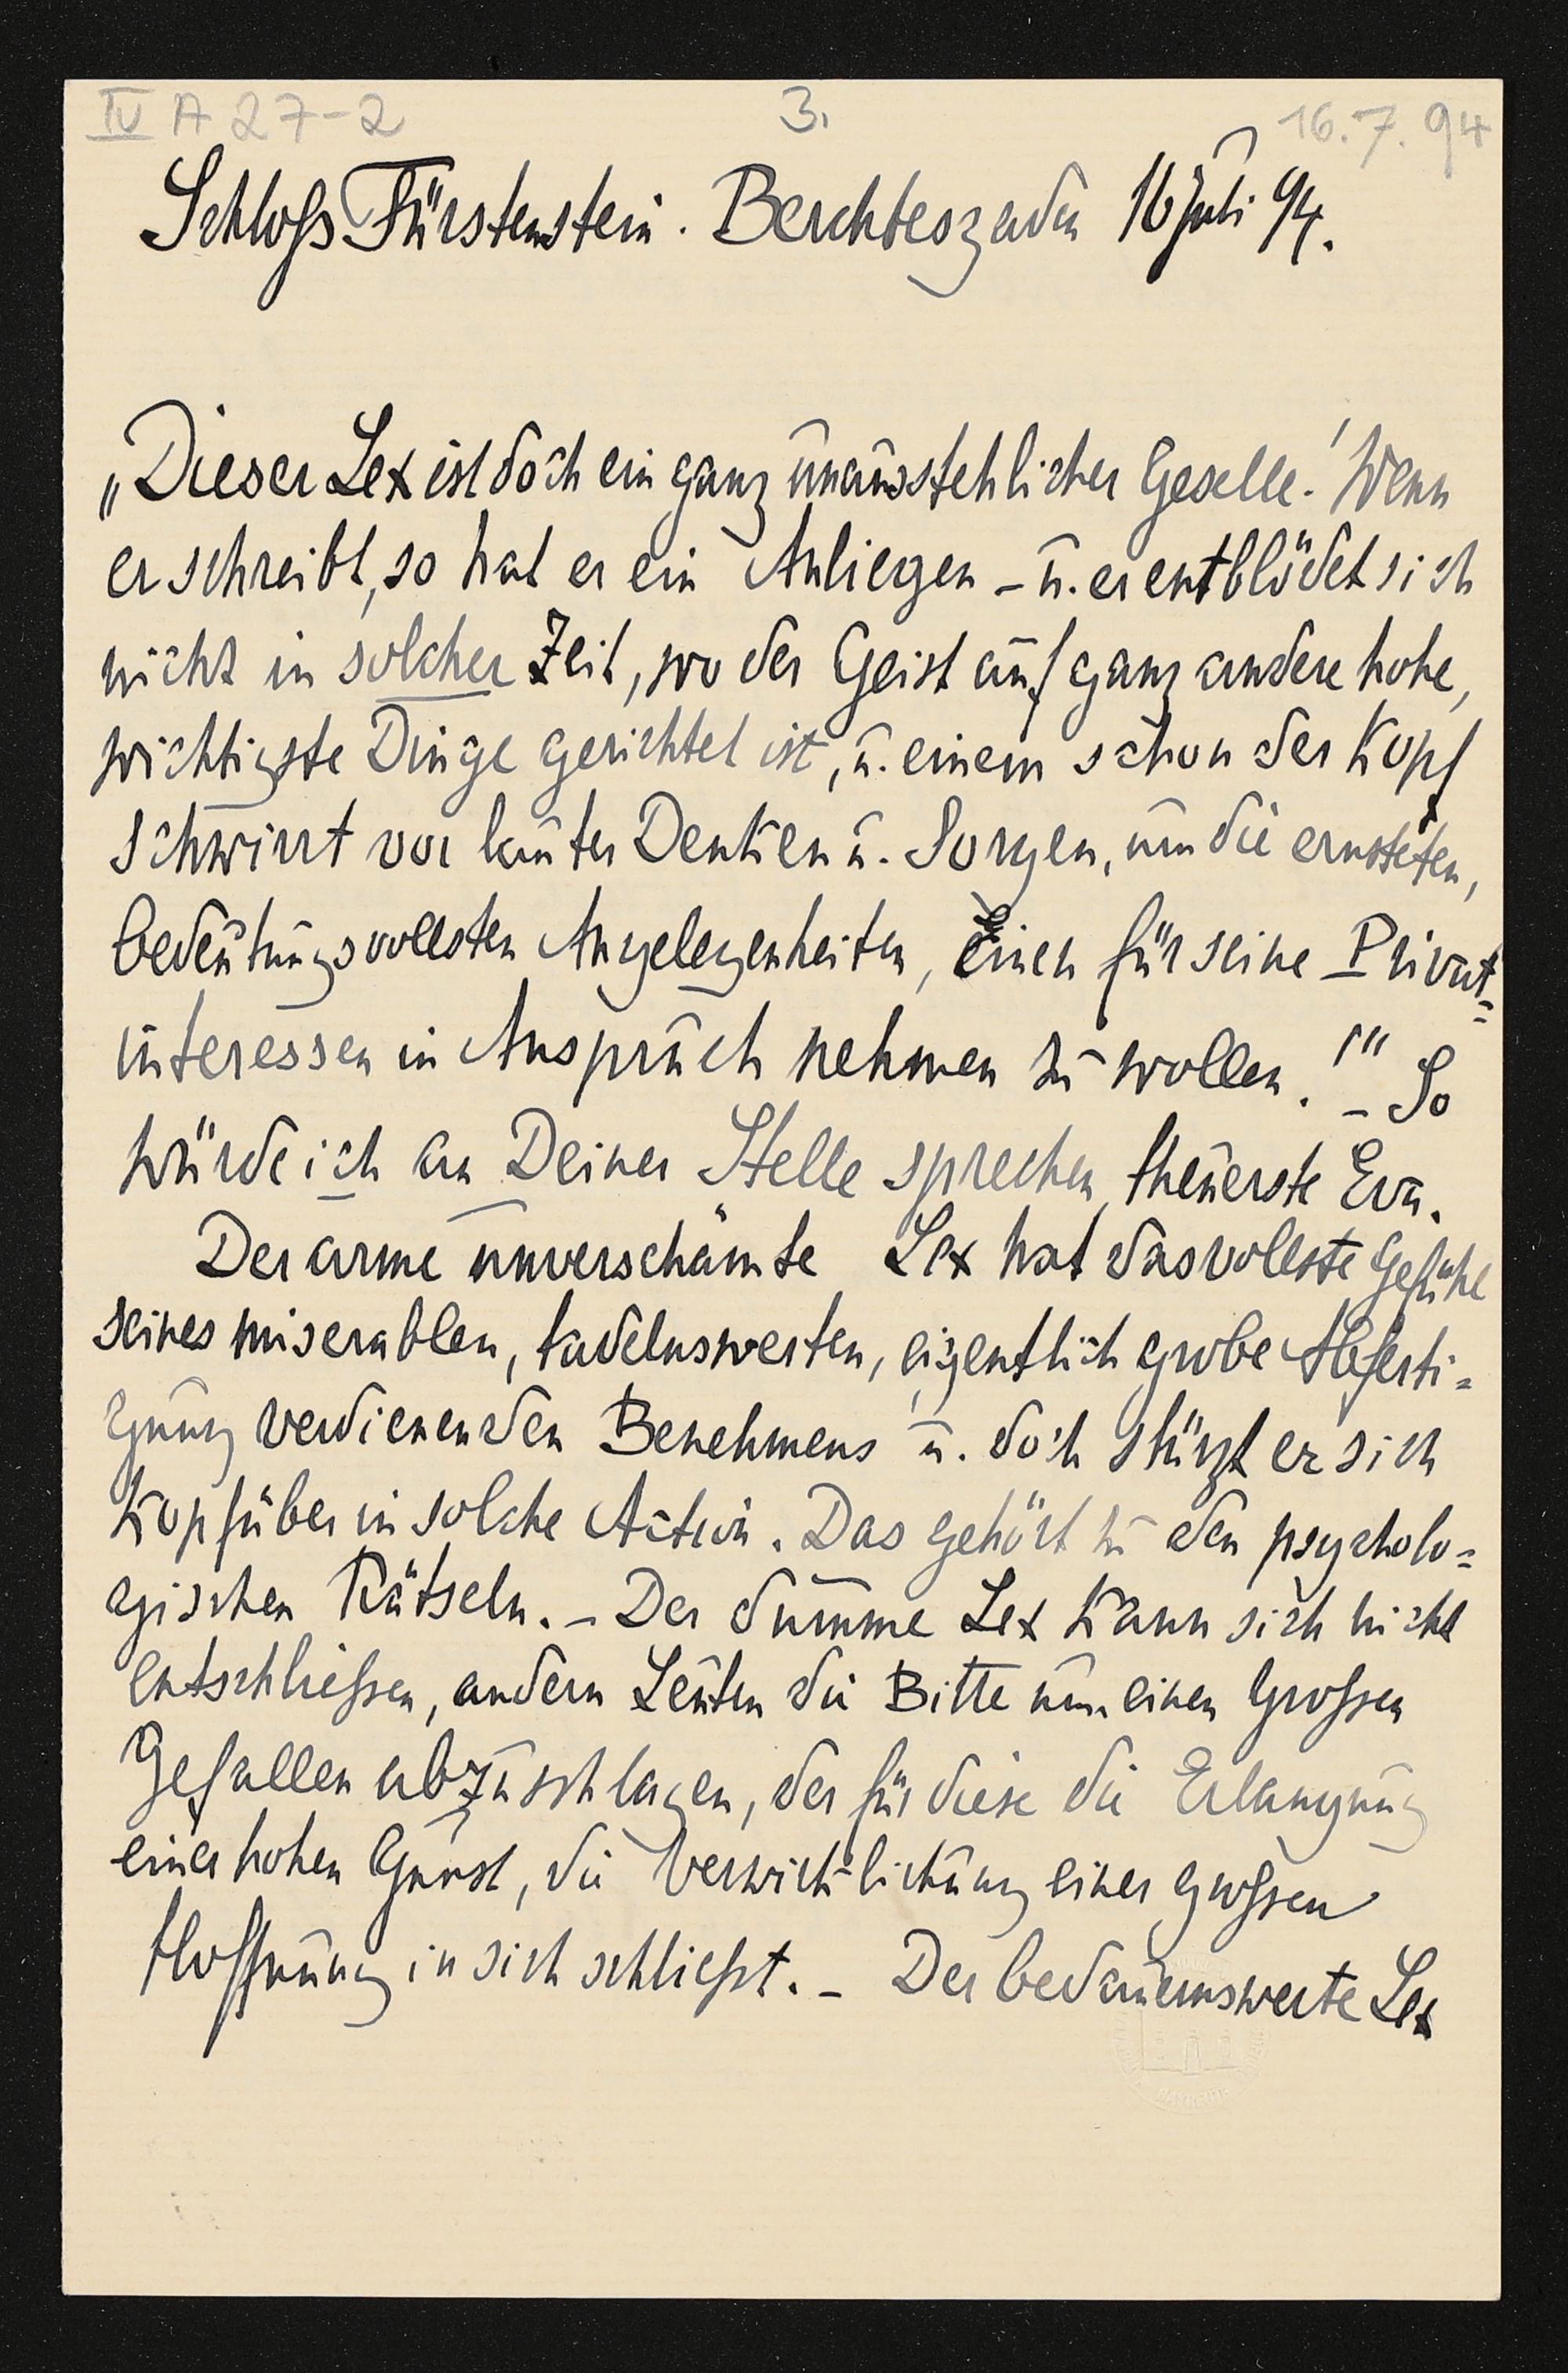 IV A 27-2 3. 16.7.94
Schloß Fürstenstein. Berchtesgaden 16 Juli 94.
„Dieser Lex ist doch ein ganz unausstehlicher Geselle! Wenn
er schreibt, so hat er ein Anliegen – u. er entblödet sich
nicht in solcher Zeit, wo der Geist auf ganz andere hohe,
wichtigste Dinge gerichtet ist, u. einem schon der Kopf
schwirrt vor lauter Denken u. Sorgen, um die ernstesten,
bedeutungsvollsten Angelegenheiten, Einen für seine Privat=
interessen in Anspruch nehmen zu wollen.!" – So
würde ich an Deiner Stelle sprechen, theuerste Eva.
Der arme unverschämte Lex hat das vollste Gefühl
seines miserablen, tadelnswerten, eigentlich grobe Abferti=
gung verdienenden Benehmens u. doch stürzt er sich
Kopfüber in solche Action. Das gehört zu den psycholo=
gischen Rätseln. – Der dumme Lex kann sich nicht
entschließen, andern Leuten die Bitte um einen Großen
Gefallen abzuschlagen, der für diese die Erlangung
einer hohen Gunst, die Verwirklichung einer großen
Hoffnung in sich schließt. – Der bedauernswerte Lex